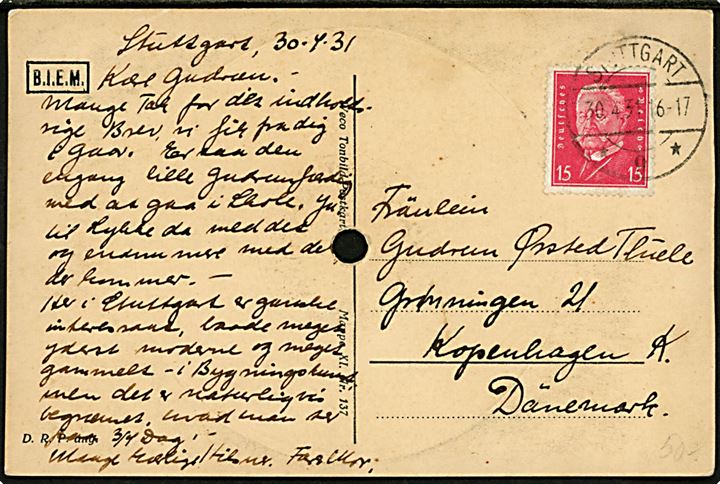 Stuttgart, 30-4.31
B.I.E.M.
Kære Gudrun. -
Mange Tak for dit indholds-
rige Brev, vi fik fra dig
i Gaar. Er saa den
engang lille Gudrun færdig
med at gaa i Skole. Ja
til Lykke da med det
og endnu mere med det
der kommer. -
Her i Stuttgart er ganske
interessant, baade meget
yderst moderne og meget
gammelt - i Bygningskunst
men det er naturligvis
begrænset, hvad man ser
paa 3/4 Dag! -
Mange kærlige Hilsner. Far & Mor.
D. R. P. ang.
Veco Tonbild-Postkarte
Mappe XI. Nr. 137
STUTTGART
30.4.31 16-17
Deutsches Reich
15 15
Fräulein
Gudrun Ørsted Thiele
Grønningen 21
Kopenhagen K.
Dänemark.
50,-